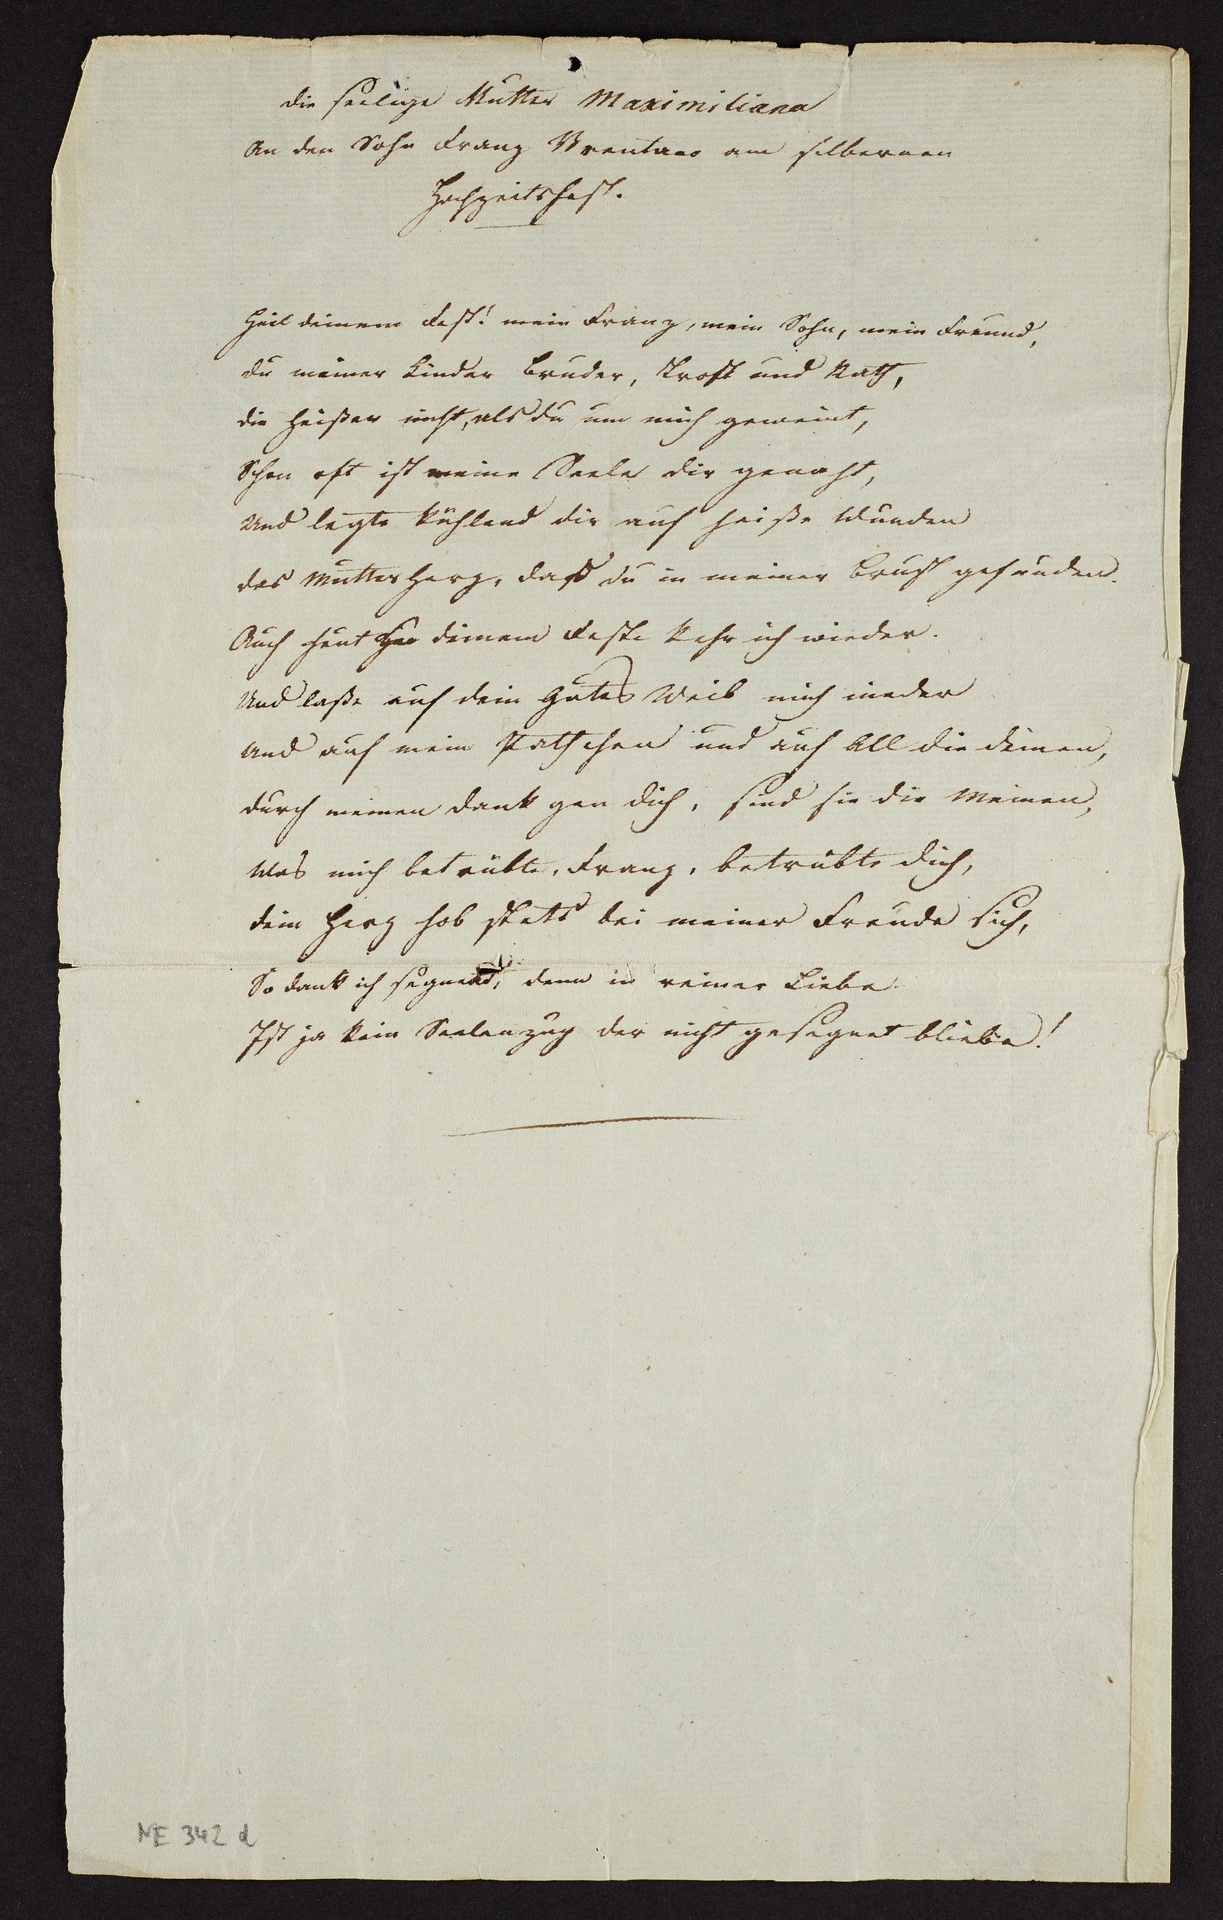 die seelige Mutter Maximiliana
An den Sohn Franz Brentano am silbernen
Hochzeitsfest.
Heil deinem Fest! mein Franz, mein Sohn, mein Freund,
du meiner Kinder Bruder, Trost und Rath,
die heißer nicht, als du um mich geweint,
Schon oft ist meine Seele dir genaht,
Und legte kühlend dir auf heiße Wunden
das Mutterherz, daß du in meiner Brust gefunden.
Auch heut deinem Feste kehr ich wieder.
Und laße auf dein gutes Weib mich nieder
Und auf mein Pathchen und auf All die deinen,
durch meinen Dank gen dich, sind sie die Meinen,
Was mich betrübte, Franz, betrübte dich,
dein Herz hob stets bei meiner Freude sich,
So dank ich segnend, denn in reiner Liebe
Ist ja kein Seelenzug der nicht gesegnet bliebe!
NE 342 d